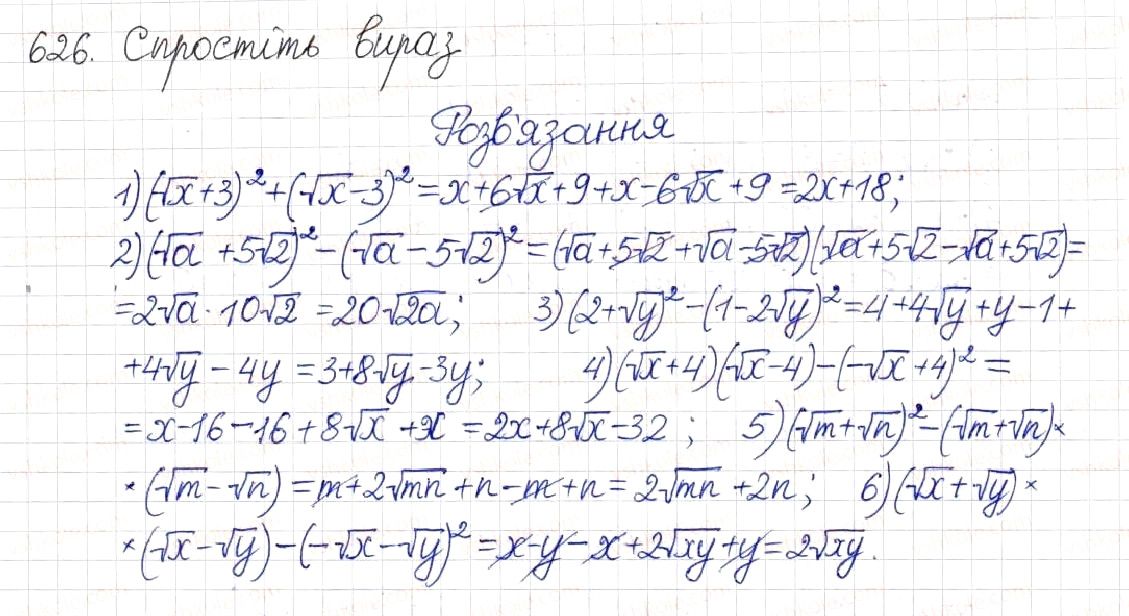 626. Спростіть вираз
Розв'язання
1) (√x+3)²+(√x-3)²=x+6√x+9+x-6√x+9=2x+18;
2) (√a+5√2)²-(√a-5√2)²=(√a+5√2+√a-5√2)(√a+5√2-√a+5√2)=
=2√a·10√2=20√2a; 3) (2+√y)²-(1-2√y)²=4+4√y+y-1+
+4√y-4y=3+8√y-3y; 4) (√x+4)(√x-4)-(-√x+4)²=
=x-16-16+8√x+x=2x+8√x-32; 5) (√m+√n)²-(√m+√n)×
×(√m-√n)=m+2√mn+n-m+n=2√mn+2n; 6) (√x+√y)×
×(√x-√y)-(-√x-√y)²=x-y-x+2√xy+y=2√xy.